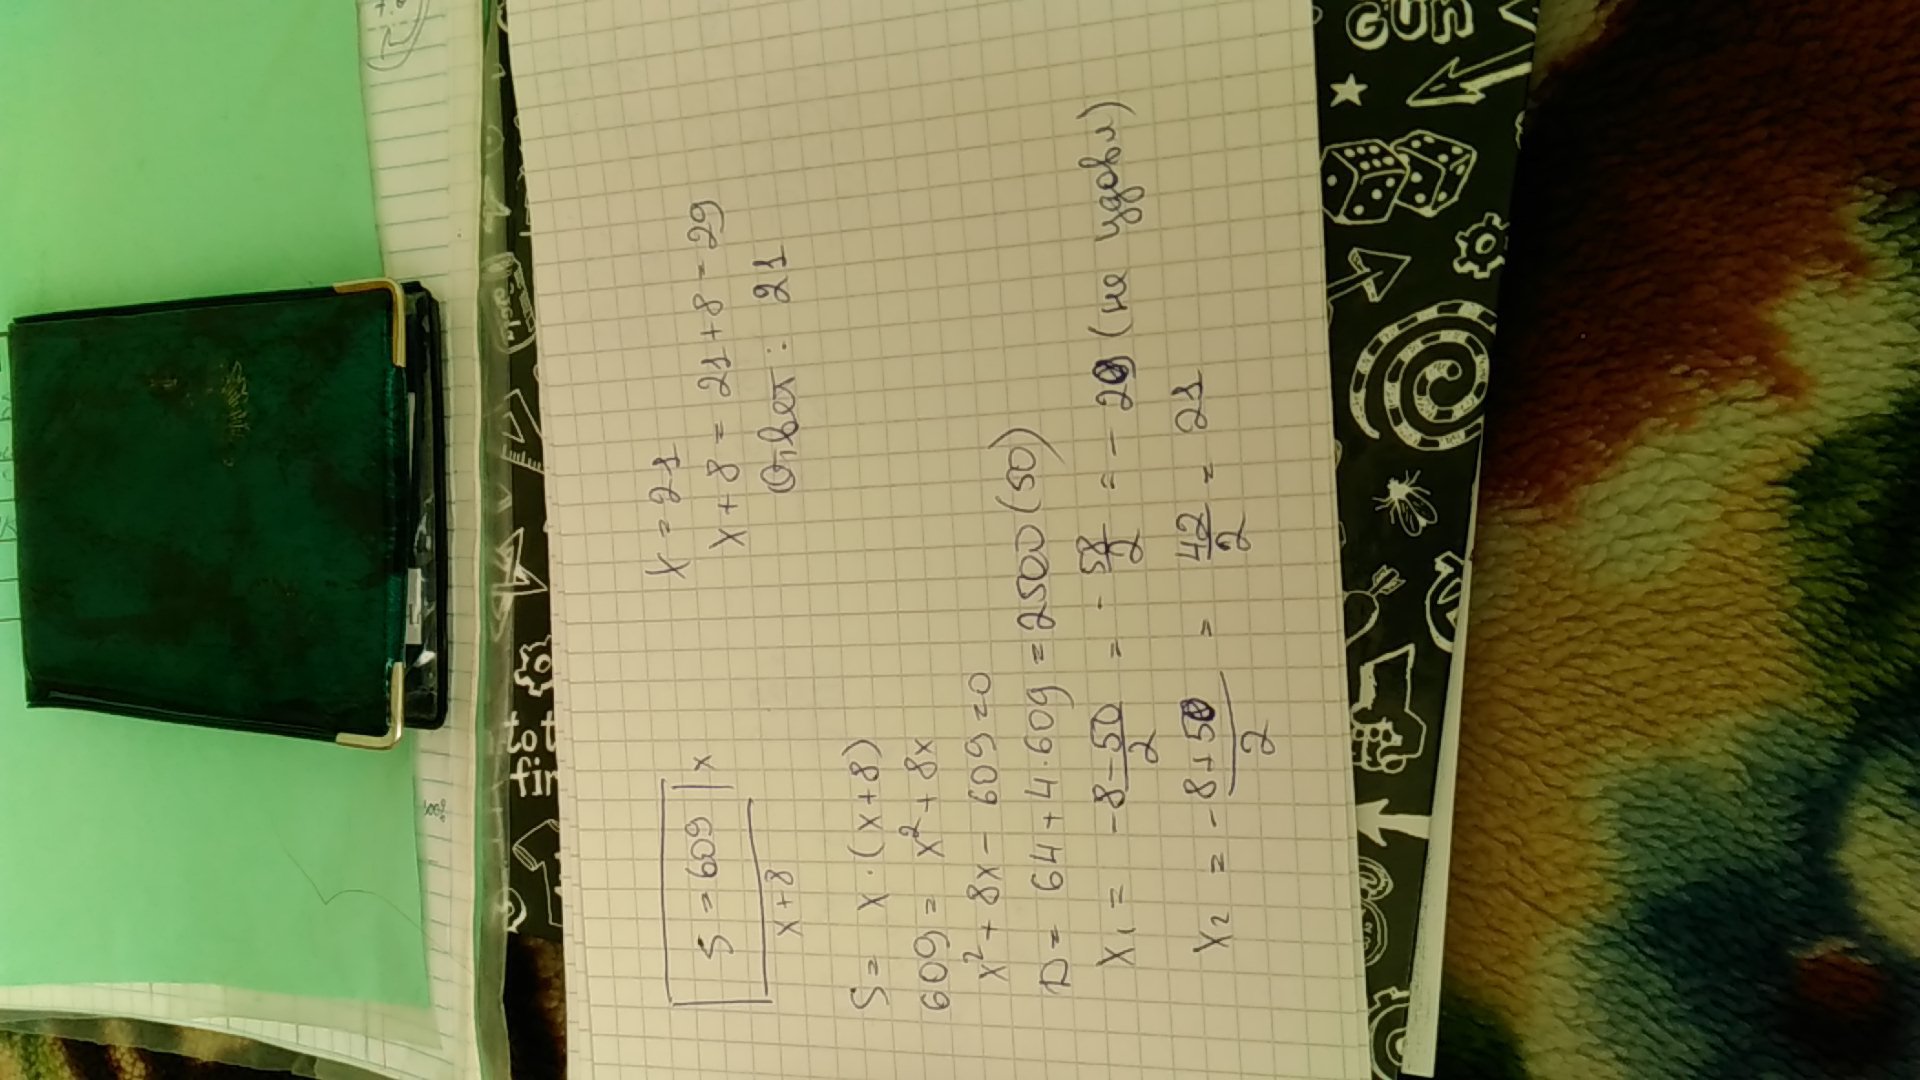 S = 609 | x
x + 8
S = x · (x + 8)
609 = x² + 8x
x² + 8x - 609 = 0
D = 64 + 4 · 609 = 2500 (50)
x₁ = -8 - 50 / 2 = - 58/2 = - 29 (не удовл)
x₂ = -8 + 50 / 2 = 42/2 = 21
x = 21
x + 8 = 21 + 8 = 29
Ответ: 21
GUN
to t
fin